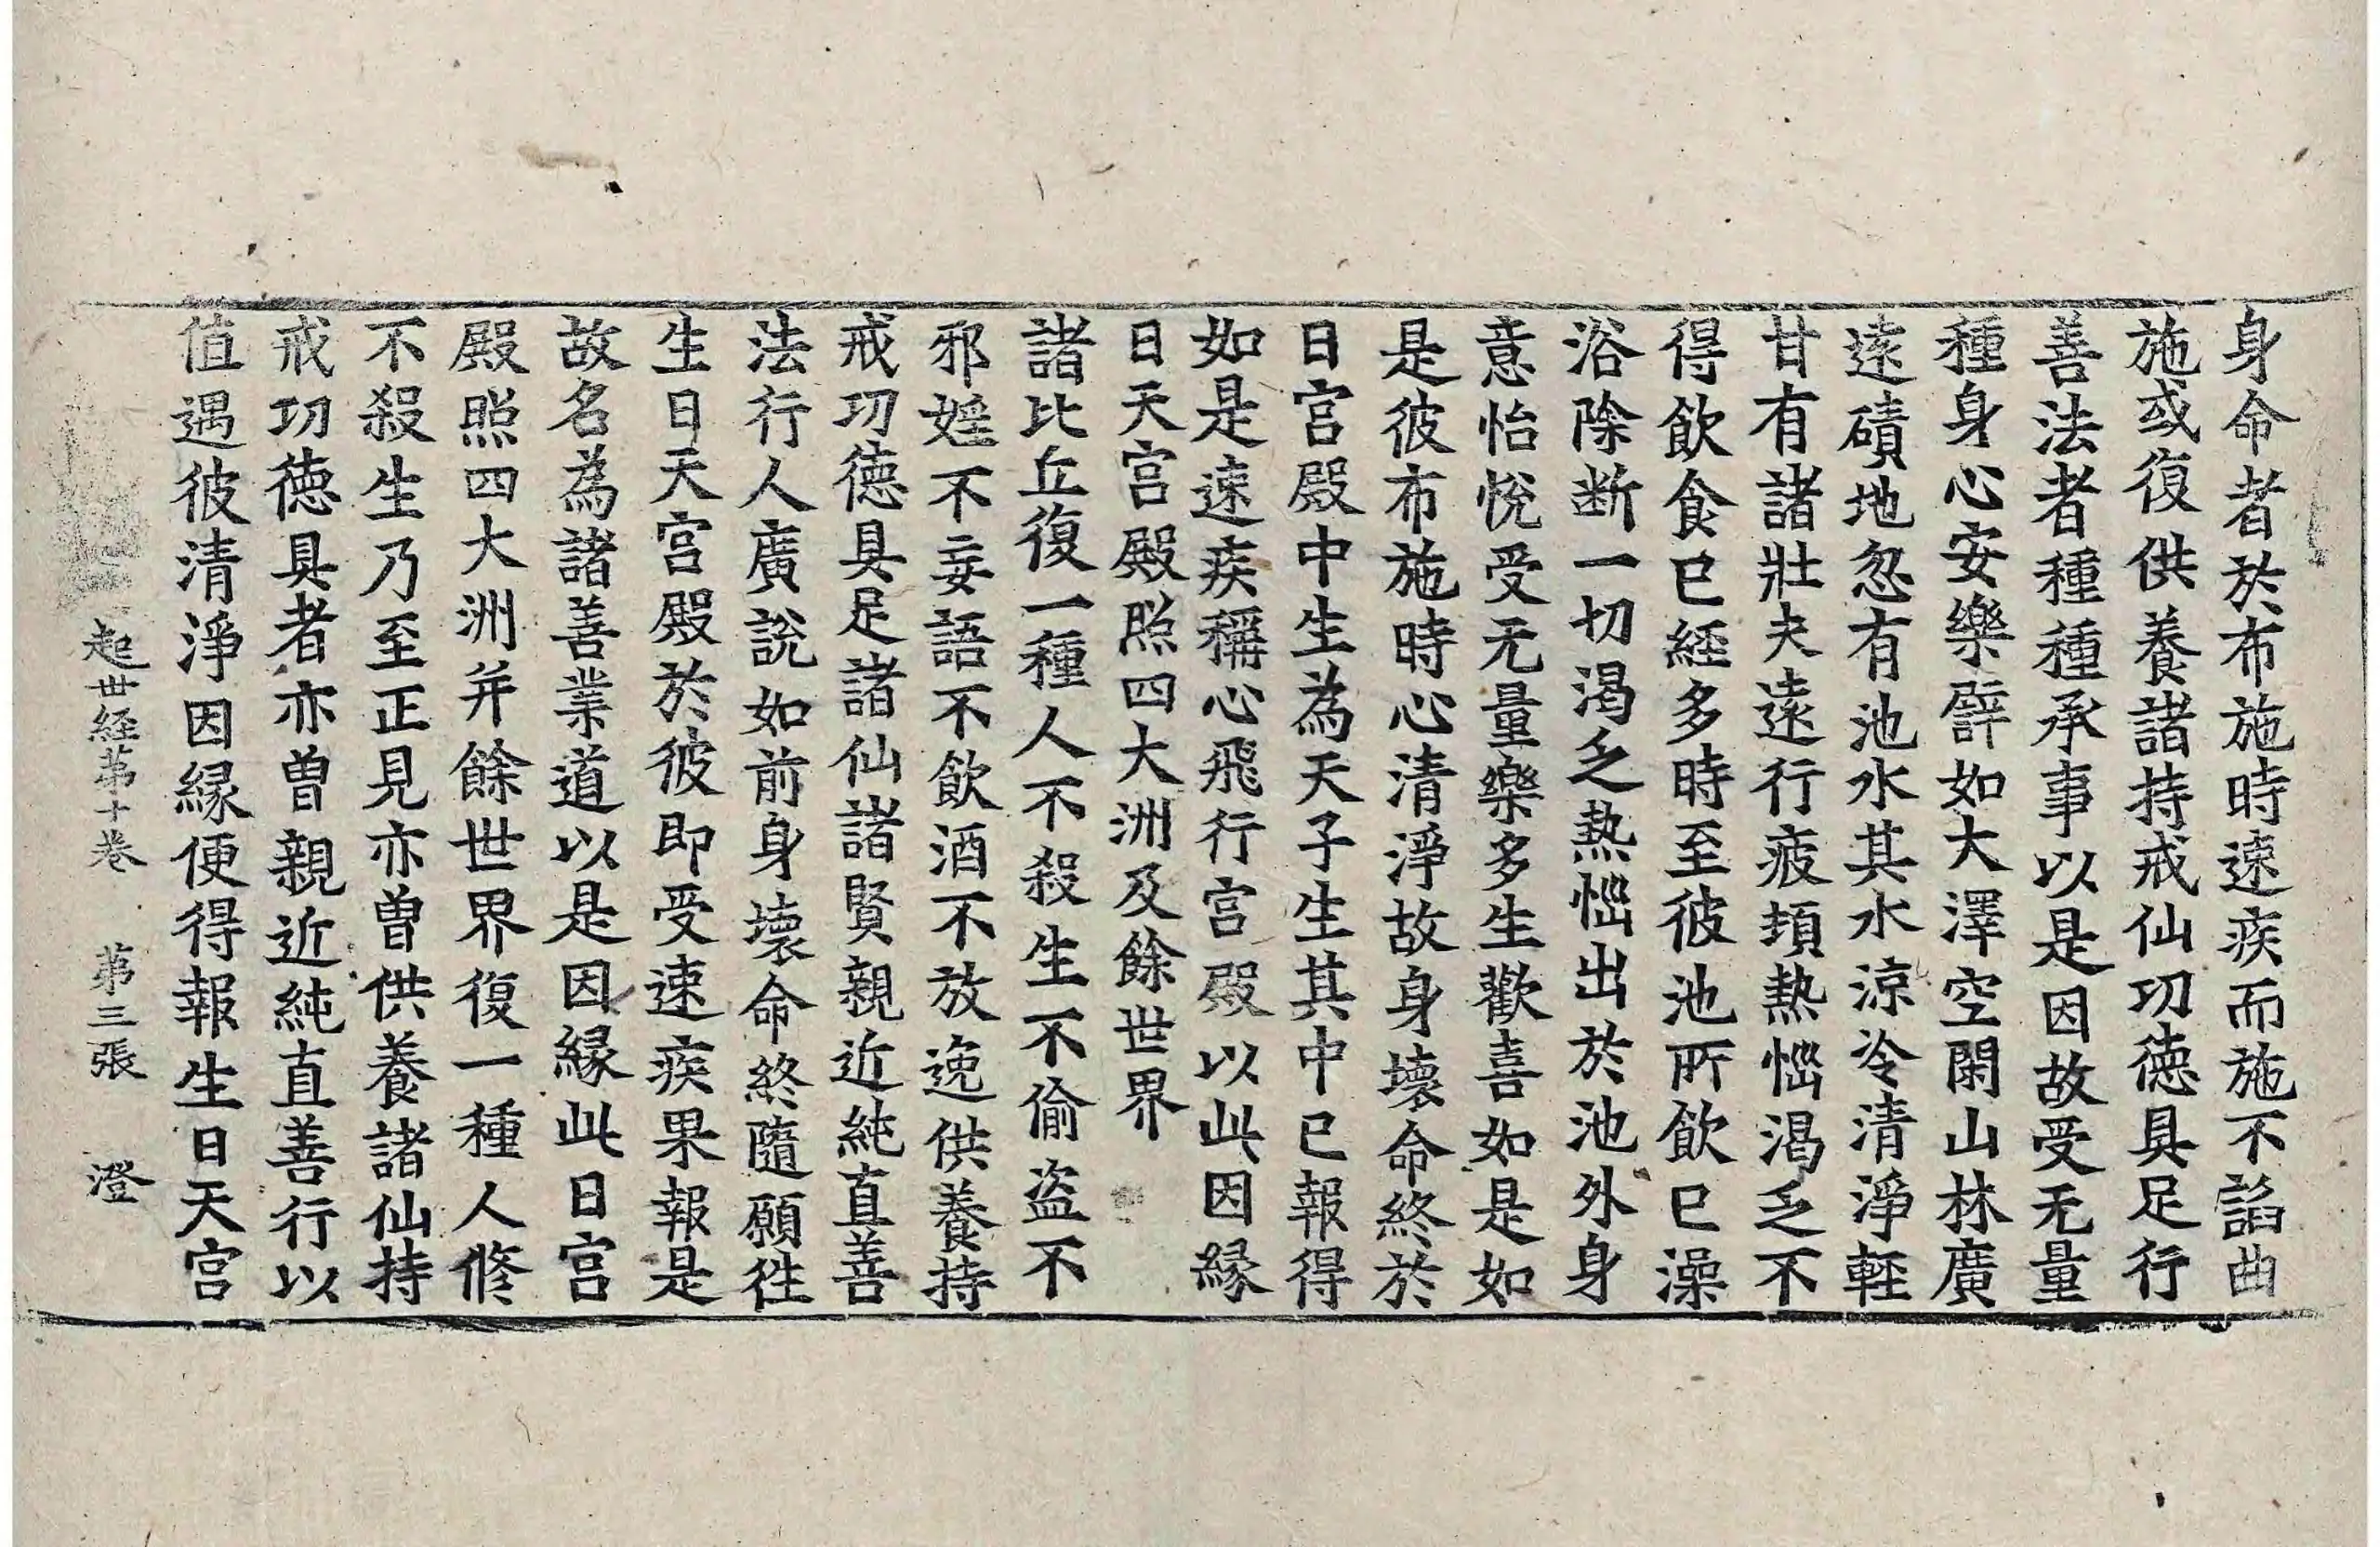 身命者於布施時速疾而施不諂曲
施或復供養諸持戒仙功德具足行
善法者種種承事以是因故受无量
種身心安樂譬如大澤空閑山林廣
遠磧地忽有池水其水涼冷清淨輕
甘有諸壯夫遠行疲頓熱惱渴乏不
得飲食已經多時至彼池所飲已澡
浴除断一切渴乏熱惱出於池外身
意怡悅受无量樂多生歡喜如是如
是彼布施時心清淨故身壞命終於
日宮殿中生為天子生其中已報得
如是速疾稱心飛行宮殿以此因緣
日天宮殿照四大洲及餘世界
諸比丘復一種人不殺生不偷盜不
邪婬不妄語不飲酒不放逸供養持
戒功德具足諸仙諸賢親近純直善
法行人廣說如前身壞命終隨願往
生日天宮殿於彼即受速疾果報是
故名為諸善業道以是因緣此日宮
殿照四大洲并餘世界復一種人修
不殺生乃至正見亦曾供養諸仙持
戒功德具者亦曾親近純直善行以
值遇彼清淨因緣便得報生日天宮
起世経苐十卷 苐三張 澄